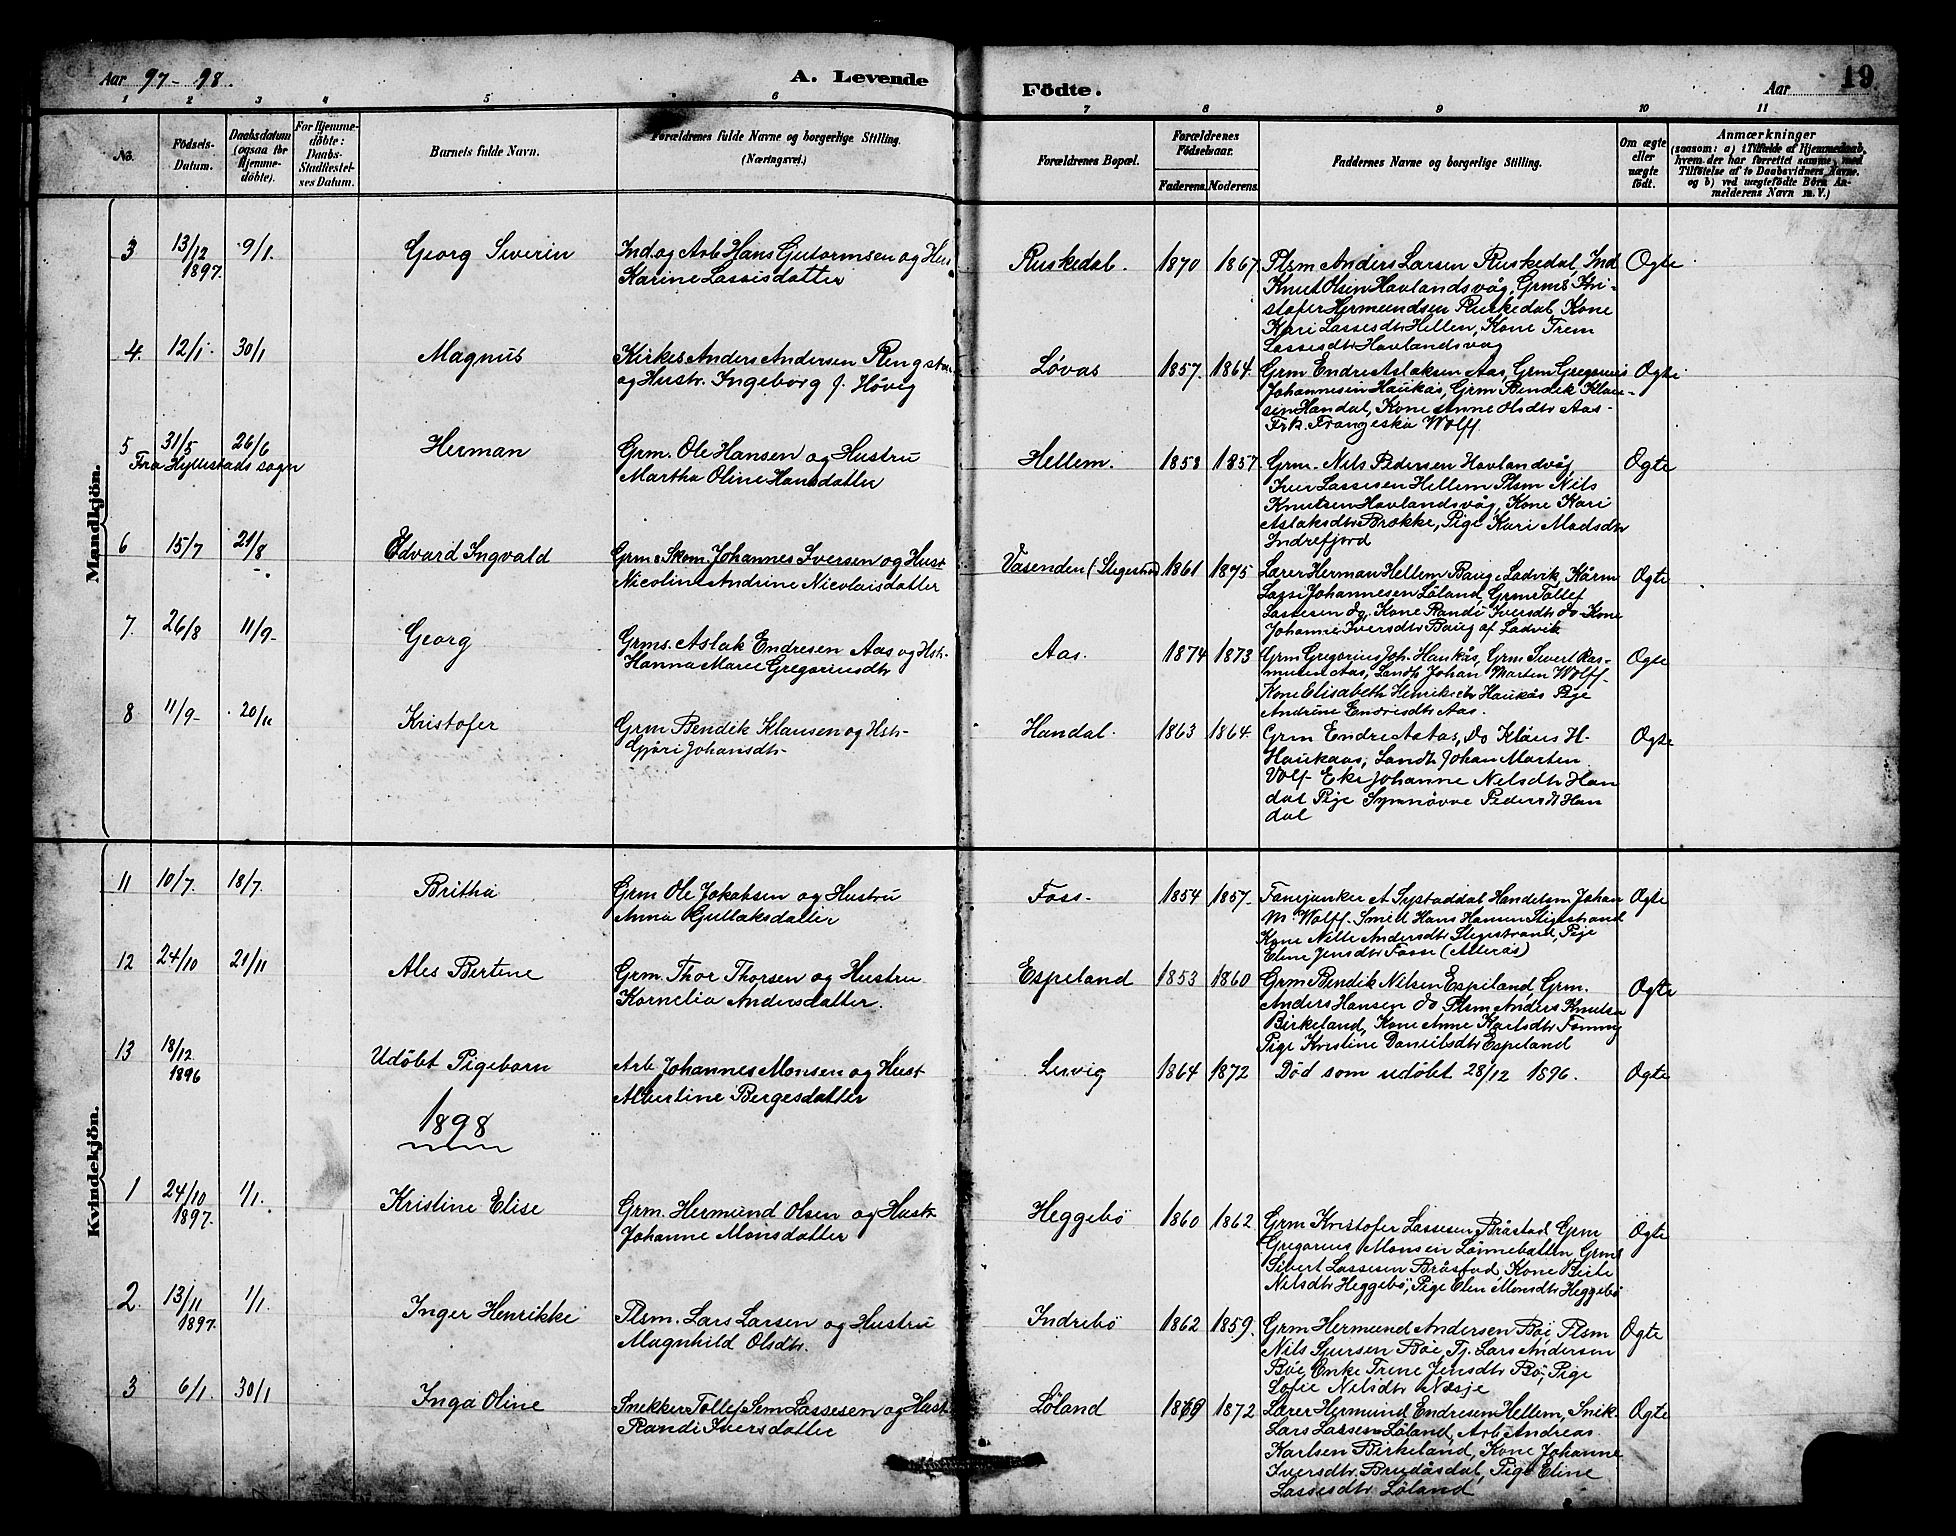 Aar 97-98.
A. Levende
Födte.
Aar
19
1 2 3 4 5 6 7 8 9 10 11
No.
Födsels-
Datum.
Daabsdatum
(ogsaa for
Hjemme-
döbte).
For Hjemme-
döbte:
Daabs-
Stadfæstel-
ses Datum.
Barnets fulde Navn.
Forældrenes fulde Navne og borgerlige Stilling.
(Næringsvei.)
Forældrenes Bopæl.
Forældrenes
Födselsaar.
Faderens. Moderens.
Faddernes Navne og borgerlige Stilling.
Om ægte
eller
uægte
födt.
Anmærkninger
(saasom: a) i Tilfælde af Hjemmedaab,
hvem der har forrettet samme, med
Tilföielse af to Daabsvidners Navne.
og b) ved uægtefödte Börn An-
melderens Navn m. V.)
Mandkjön.
3 13/12 1897. 9/1. Georg Severin
Ind. og Arb Hans Gutormsen og Hus
Karine Lassisdatter
Ruskedal. 1870 1867
Plsm Anders Larsen Ruskedal, Ind
Knut Olsen Havlandsvåg, Grms Kri-
stofer Hermundsen Ruskedal, Kone
Kari Lassesdtr Hellem, Kone Trem
Lassesdtr Havlandsvag
Ogte
4. 12/1. 30/1 Magnus
Kirkes Anders Andersen Rengsta
og Hustr. Ingeborg f. Høvig
Løvas 1857. 1864.
Grm Endre Aslaksen Aas, Grm Gregorius
Johannesen Haukås, Grm Bendik Klau-
sen Handal, Kone Anne Olsdtr Aas-
Frk. Frangeska Wolff
Ogte
5 31/5 26/6 Herman
Fra Hyllestads sogn
Grm. Ole Hansen og Hustru
Martha Oline Hansdatter
Hellem. 1858 1857
Grm. Nils Pedersen Havlandvåg,
Iver Lassesen Hellem Plsm Nils
Knutsen Havlandsvåg, Kone Kari
Aslaksdtr Brokke, Pige Kari Madsdtr
Indrefjord
Ogte
6 15/7 21/8 Edvard Ingvald
Grm & Skom. Johannes Iversen og Hust
Nicoline Andrine Nicolaisdatter
Vasenden (Slegestrand) 1861 1875
Lærer Herman Hellem Baug i Ladvik, Kårm
Lassi Johannesen Löland, Grm Tollef
Lassesen do. Kone Randi Iversdtr do Kone
Johanne Iversdtr Baug af Ladvik
Ogte
7. 26/8 11/9- Georg
Grms. Aslak Endresen Aas og Hstr-
Hanna Marie Gregoriusdtr
Aas. 1874 1873
Grm Gregorius Joh. Haukås, Grm Sivert Ras-
musen Aas, Landh Johan Marten Wolff-
Kone Elisabeth Henriksdtr Haukås Pige
Andrine Endresdtr Aas.
Ogte
8 11/9- 20/11 Kristofer
Grm Bendik Klausen og Hstr-
Gjøri Johansdtr-
Handal. 1863 1864.
Grm Endre A Aas, do Klaus H-
Haukaas, Landh Johan Marten
Volf- Eke Johanne Nelsdtr Han
dal Pige Synnøve Pedersdtr Han
dal
Ogte
Kvindekjön.
11 10/7. 18/7. Britha
Grm Ole Jakobsen og Hustru
Anna Gullaksdatter
Foss- 1854 1857-
Fanejunker A Systaddal Handelsm Johan
M Wolff. Smed Hans Hansen Slegestrand
Kone Nille Andersdtr Slegestrand, Pige
Eline Jensdtr Fosse (Alterås)
Ogte
12 24/10 21/11 Ales Bertine
Grm. Thor Thorsen og Hustru
Kornelia Andersdatter.
Espeland 1853 1860
Grm Bendik Nilsen Espeland Grm.
Anders Hansen do Plsm Anders Knutsen
Birkeland, Kone Anne Karlsdtr Fonning
Pige Kristine Danielsdtr Espeland
Ogte
13 18/12. 1896 Udøbt Pigebarn
Arb Johannes Monsen og Hust
Albertine Bergesdatter
Lervig 1864 1872
Død som udøbt 28/12 1896.
Ogte
1898
1 24/10 1897. 1/1. Kristine Elise
Grm. Hermund Olsen og Hustr
Johanne Monsdatter
Heggebö 1860 1862
Grm Kristofer Lassesen Bråstad Grm
Gregorius Monsen Lønneballen Grms
Sivert Lassesen Bråstad Kone Birte
Nilsdtr Heggebö, Pige Elen Monsdtr Heggebö
Ogte
2. 13/11 1897. 1/1. Inger Henrikke
Plsm. Lars Larsen og Hustru
Magnhild Olsdtr.
Indrebö 1862 1859.
Grm Hermund Andersen Böe, Plsm
Nils Sjursen Böe, Tj. Lars Andersen
Böe, Enke Trine Jensdtr Bö, Pige
Sofie Nilsdtr Nesje
Ogte
3 6/1. 30/1 Inga Oline
Snekker Tollef Sem Lassesen og Hust
Randi Iversdatter
Löland 1869 1872
Lærer Hermund Endresen Hellem, Snik-
Lars Lassen Löland, Arb Andreas
Karlsen Birkeland, Kone Johanne
Iversdtr. Brudåsdal, Pige Eline
Lassesdtr Löland
Ogte